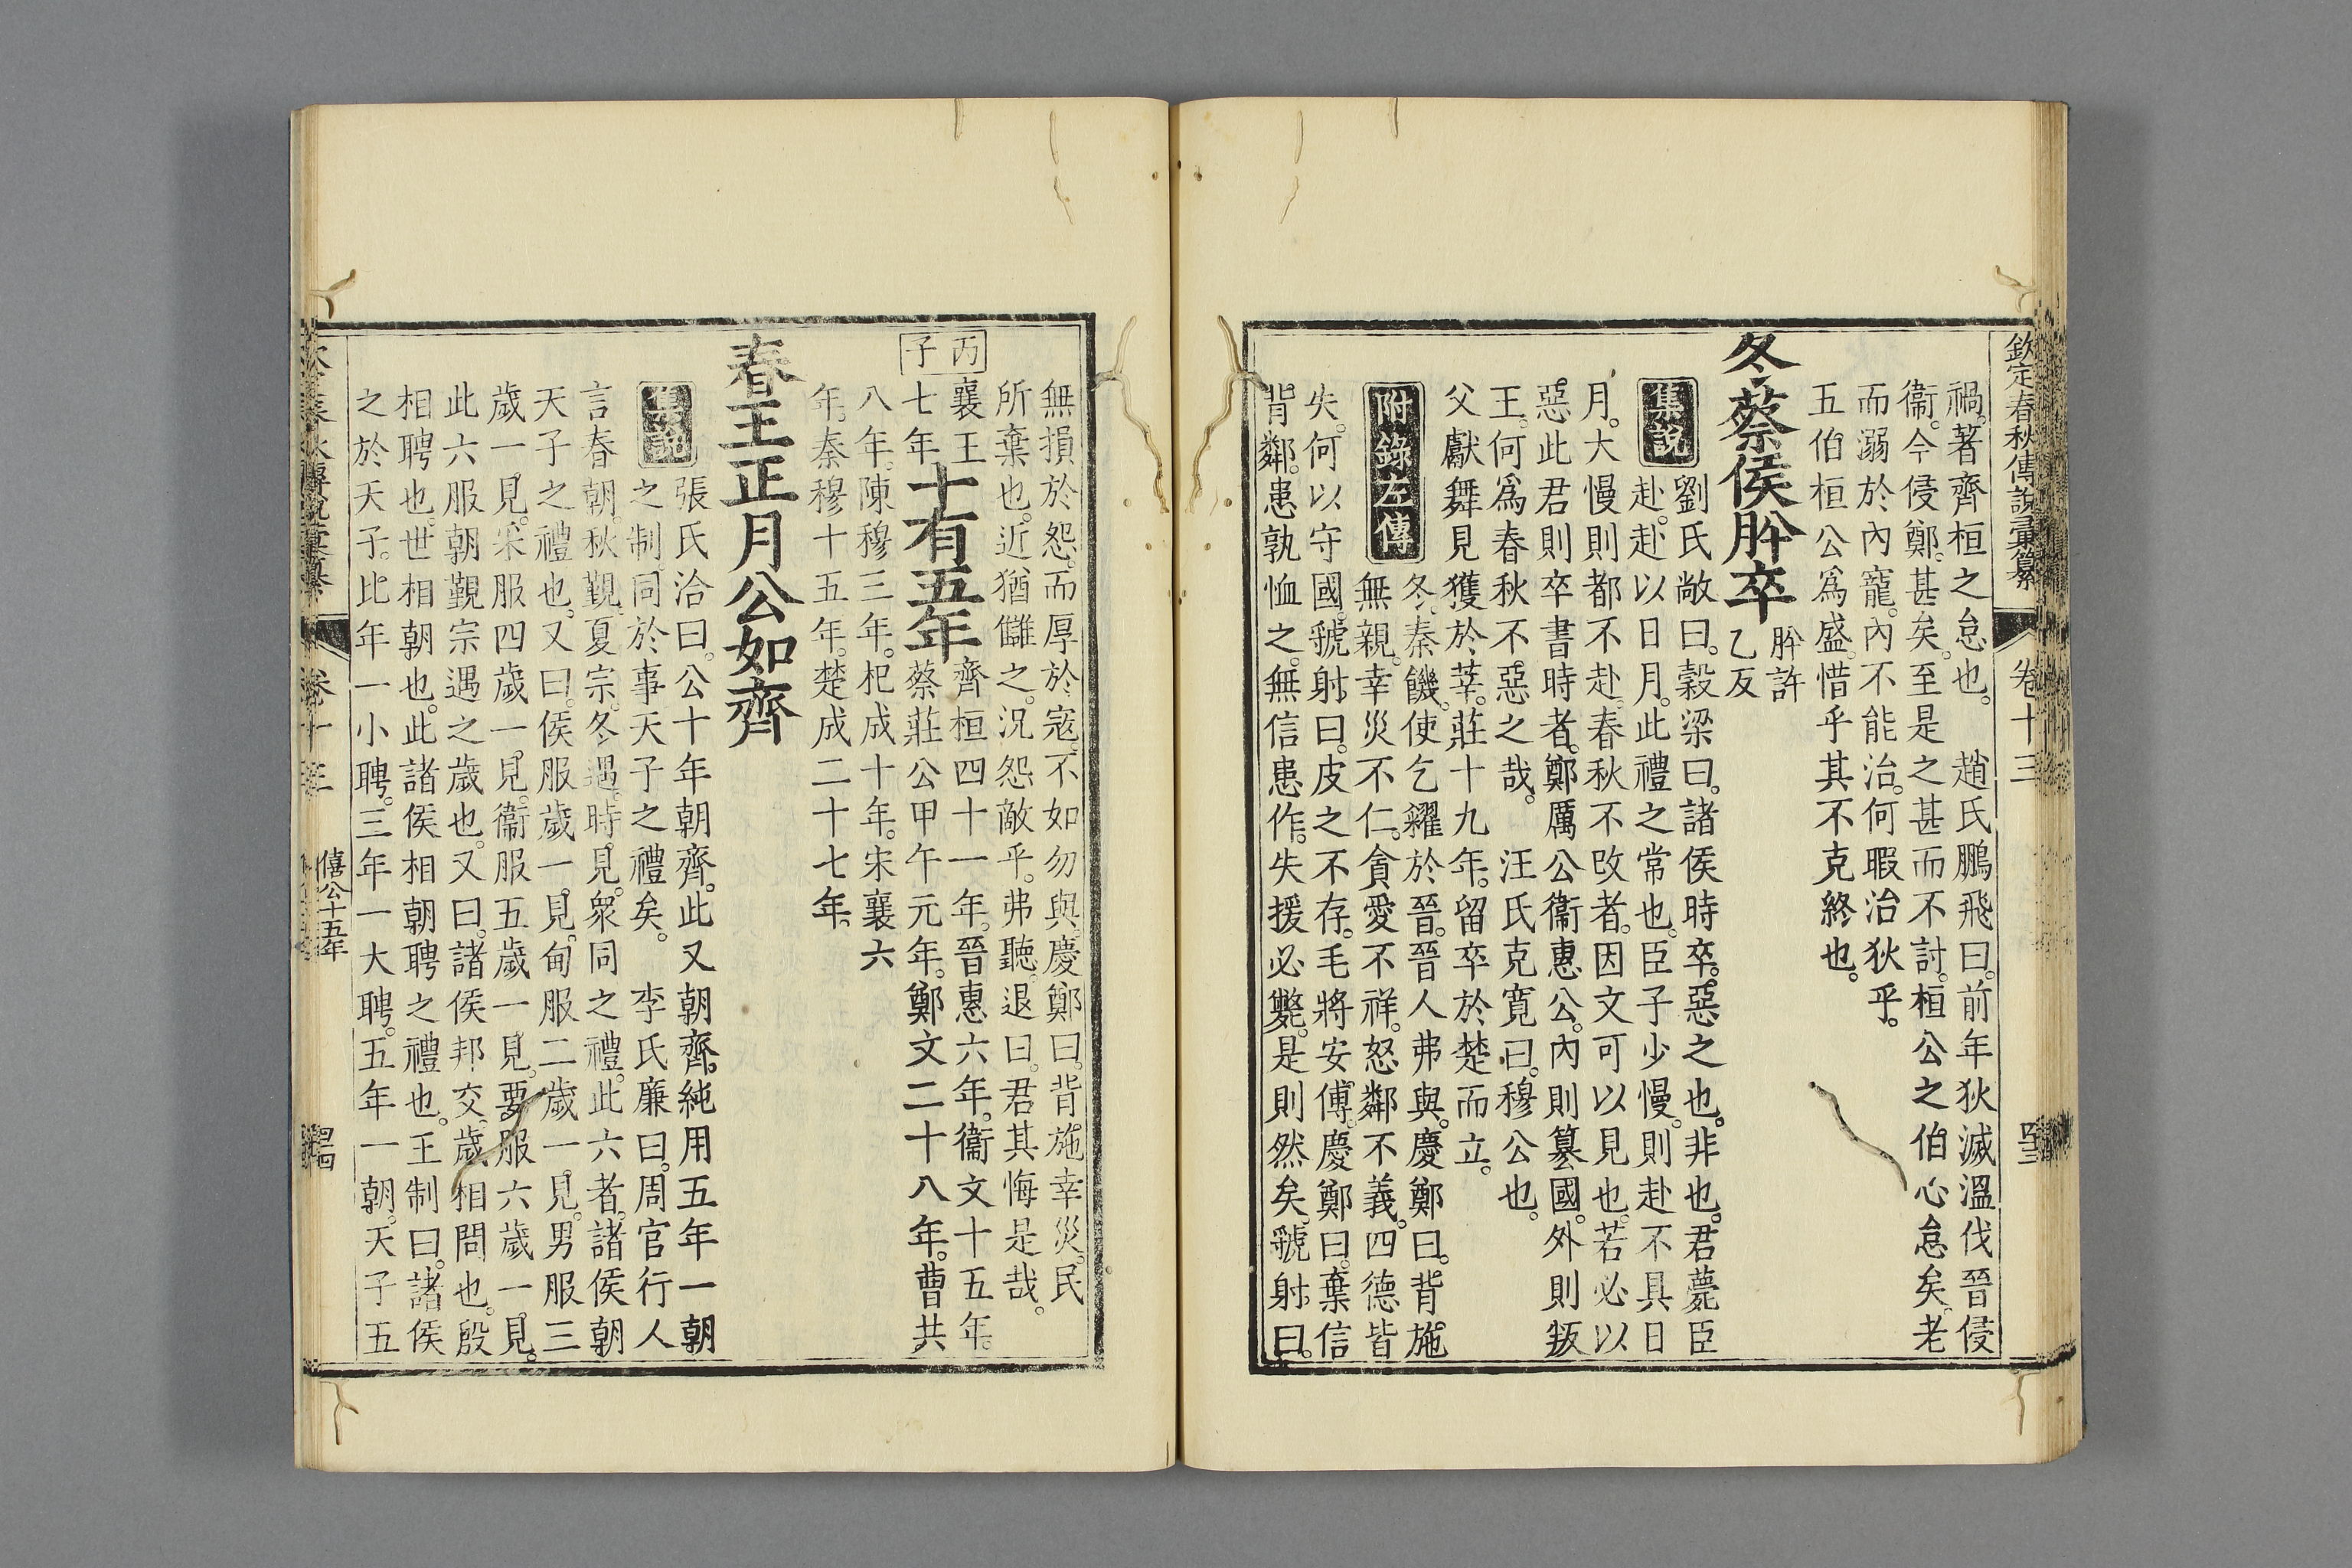 欽定春秋傳說彙纂 卷十三 四三
禍。著齊桓之怠也。 趙氏鵬飛曰。前年狄滅溫伐晉侵
衞。今侵鄭。甚矣。至是之甚而不討。桓公之伯心怠矣。老
而溺於內寵。內不能治。何暇治狄乎。
五伯桓公爲盛。惜乎其不克終也。
冬蔡侯肸卒 肸許
乙反
集說 劉氏敞曰。榖梁曰。諸侯時卒。惡之也。非也。君薨臣
赴。赴以日月。此禮之常也。臣子少慢。則赴不具日
月。大慢則都不赴。春秋不攺者。因文可以見也。若必以
惡此君則卒書時者。鄭厲公衞惠公。內則篡國。外則叛
王。何爲春秋不惡之哉。 汪氏克寬曰。穆公也。
父獻舞見獲於莘。莊十九年。留卒於楚而立。
附錄左傳 冬。秦饑。使乞糴於晉。晉人弗與。慶鄭曰。背施
無親。幸災不仁。貪愛不祥。怒鄰不義。四德皆
失。何以守國。虢射曰。皮之不存。毛將安傅。慶鄭曰。棄信
背鄰。患孰恤之。無信患作。失援必斃。是則然矣。虢射曰。
無損於怨。而厚於寇。不如勿與。慶鄭曰。背施幸災。民
所棄也。近猶讎之。況怨敵乎。弗聽。退曰。君其悔是哉。
丙子 襄王七年 十有五年 齊桓四十一年。晉惠六年。衞文十五年。
蔡莊公甲午元年。鄭文二十八年。曹共
八年。陳穆三年。杞成十年。宋襄六
年。秦穆十五年。楚成二十七年。
春王正月公如齊
集說 張氏洽曰。公十年朝齊。此又朝齊。純用五年一朝
之制。同於事天子之禮矣。 李氏廉曰。周官行人
言春朝。秋覲。夏宗。冬遇。時見。衆同之禮。此六者。諸侯朝
天子之禮也。又曰。侯服歲一見。甸服二歲一見。男服三
歲一見。采服四歲一見。衞服五歲一見。要服六歲一見。
此六服朝覲宗遇之歲也。又曰。諸侯邦交。歲相問也。殷
相聘也。世相朝也。此諸侯相朝聘之禮也。王制曰。諸侯
之於天子。比年一小聘。三年一大聘。五年一朝。天子五
卷十三 僖公十五年 四四